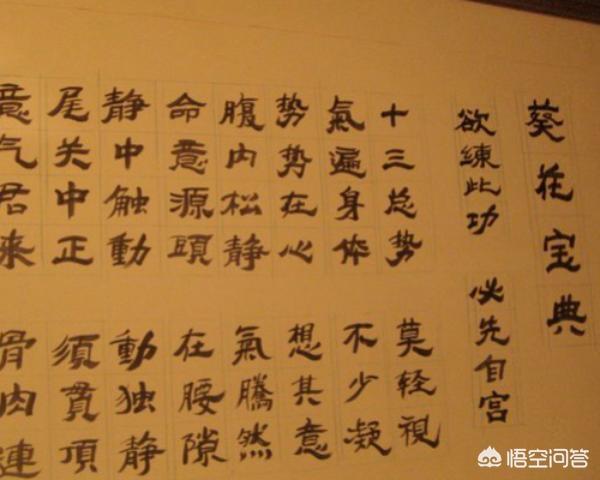 葵花宝典
欲練此功 必先自宫
十三总势 莫轻視
氣遍身体 不少凝
势势在心 想其意
腹内松静 氣騰然
命意源頭 在腰隙
静中触動 動独静
尾关中正 須貫頂
意气君来 骨肉連
悟空问答